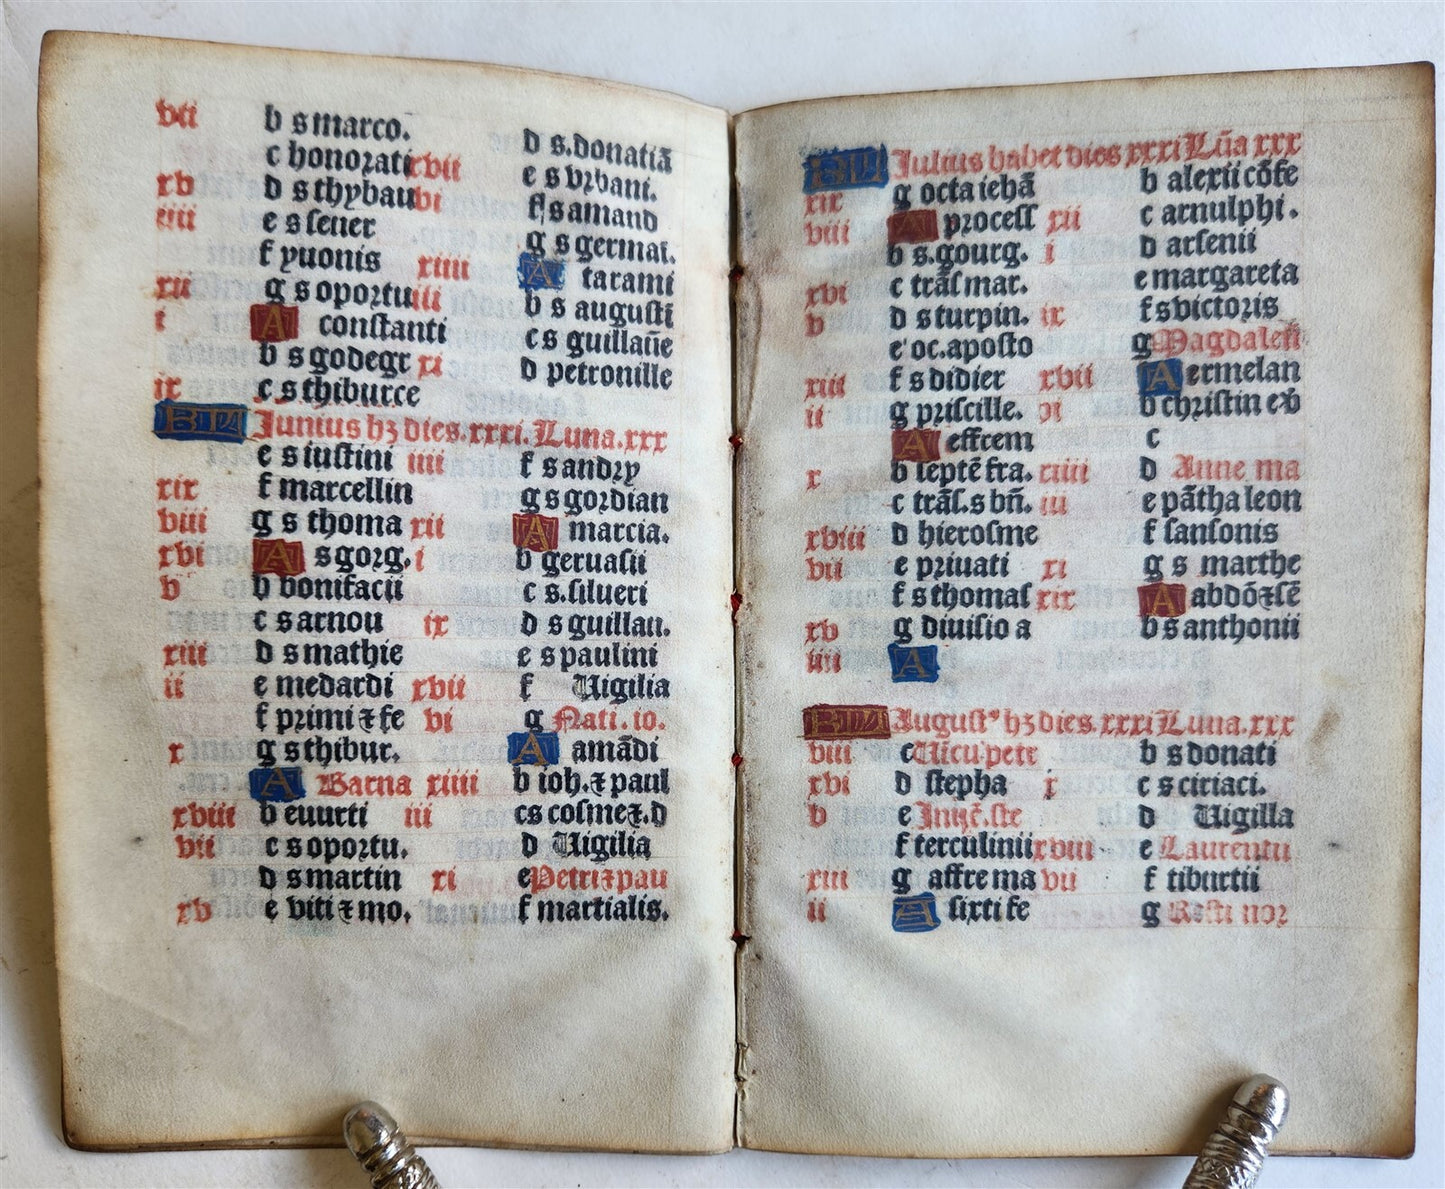 vii b s marco.
c honorati
xv d s thybau
iiii e s seuer
f yuonis
xii g s oportu
i A constanti
b s godegr
ix c s thiburce
xvii d s.donatiā
vi e s vrbani.
f s amand
g s germai.
xiiii A tarami
iii b s augusti
c s guillaūe
xi d petronille
KL Junius hꝫ dies.xxxi.Luna.xxx
e s iustini
xix f marcellin
viii g s thoma
xvi A s gorg.
v b bonifacii
c s arnou
xiii d s mathie
ii e medardi
f primi ⁊ fe
x g s thibur.
A Barna
xviii b euurti
vii c s oportu.
d s martin
xv e viti ⁊ mo.
iiii f s andry
g s gordian
xii A marcia.
i b geruasii
c s.silueri
ix d s guillau.
e s paulini
xvii f Uigilia
vi g Nati.io.
A amādi
xiiii b ioh.⁊ paul
iii c s cosme⁊.d
d Uigilia
xi e Petri⁊pau
f martialis.
KL Julius habet dies xxxi Lūa xxx
xix g octa iehā
viii A process
b s.gourg.
xvi c trāsmar.
v d s turpin.
e oc.aposto
xiii f s didier
ii g priscille.
A effrem
x b septē fra.
c trās.s bn̄.
xviii d hierosme
vii e priuati
f s thomas
xv g diuisio a
iiii A
b alexii cōfe
xii c arnulphi.
i d arsenii
e margareta
ix f s victoris
g Magdalen
xvii A ermelan
vi b christin ev̄
c
xiiii d Anne ma
iii e pātha leon
f sansonis
xi g s marthe
xix A abdō⁊sē
b s anthonii
KL August⁹ hꝫ dies.xxxi Luna.xxx
viii c Uicu.petr
xvi d stepha
v e Inuē.ste
f terculinii
xiii g affre ma
ii A sixti fe
b s donati
x c s ciriaci.
d Uigilla
xviii e Laurentii
vii f tiburtii
g